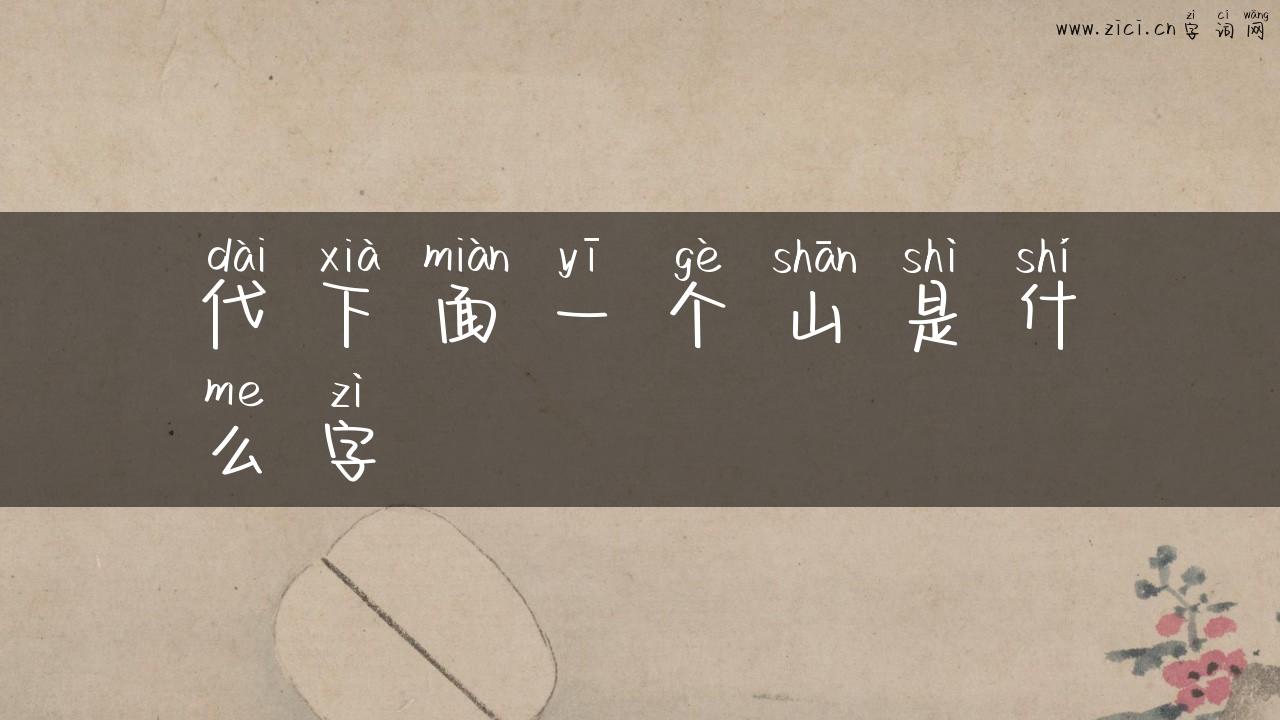 zì cí wǎng
www.zici.cn字词网
dài xià miàn yī gè shān shì shí
代下面一个山是什
me zì
么字